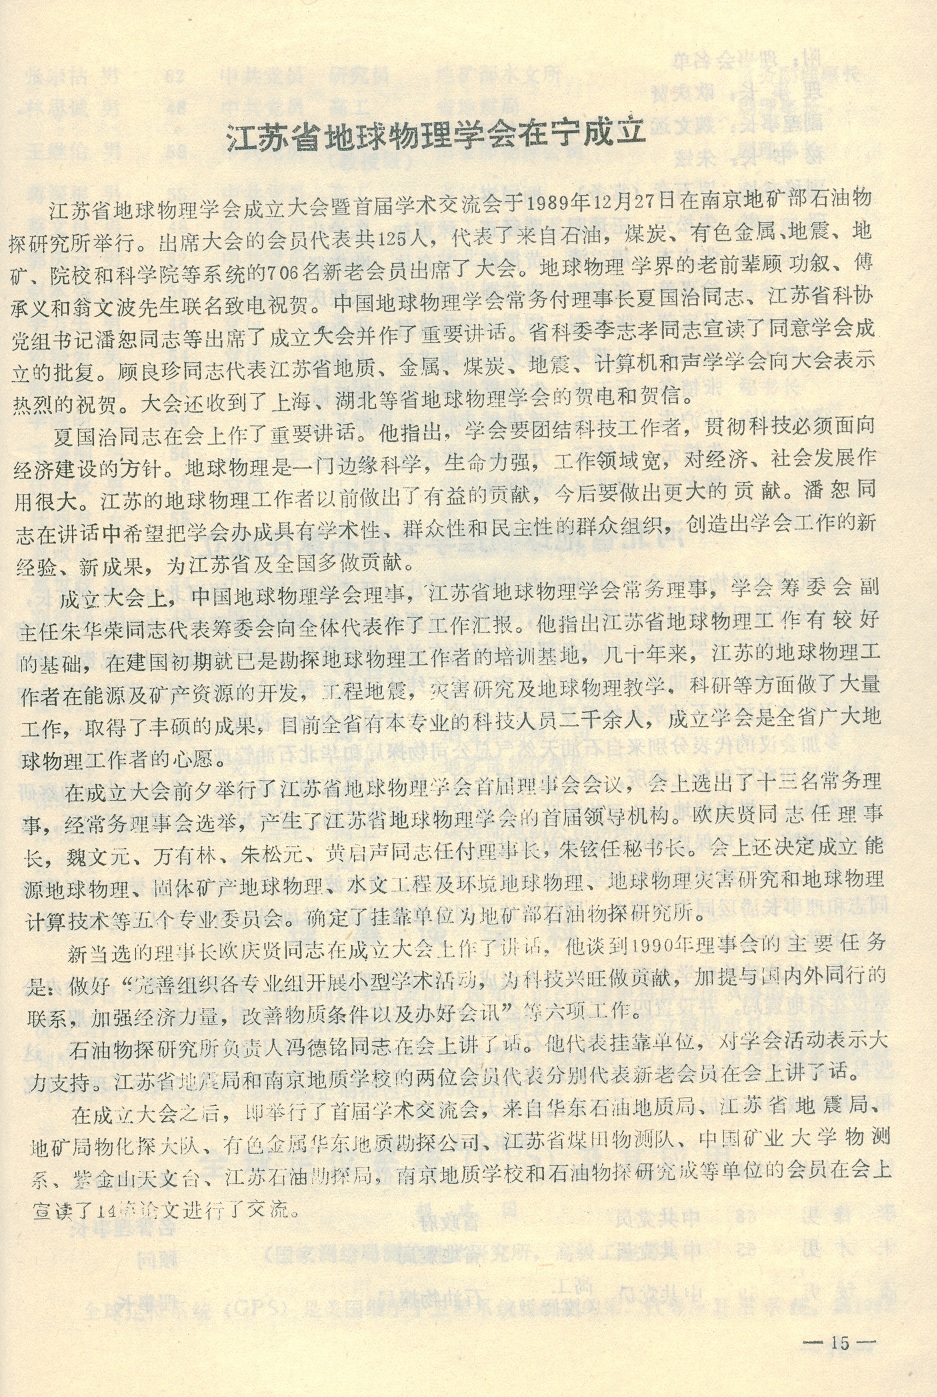 江苏省地球物理学会在宁成立
江苏省地球物理学会成立大会暨首届学术交流会于1989年12月27日在南京地矿部石油物
探研究所举行。出席大会的会员代表共125人，代表了来自石油，煤炭、有色金属、地震、地
矿、院校和科学院等系统的706名新老会员出席了大会。地球物理学界的老前辈顾功叙、傅
承义和翁文波先生联名致电祝贺。中国地球物理学会常务付理事长夏国治同志、江苏省科协
党组书记潘恕同志等出席了成立大会并作了重要讲话。省科委李志孝同志宣读了同意学会成
立的批复。顾良珍同志代表江苏省地质、金属、煤炭、地震、计算机和声学学会向大会表示
热烈的祝贺。大会还收到了上海、湖北等省地球物理学会的贺电和贺信。
夏国治同志在会上作了重要讲话。他指出，学会要团结科技工作者，贯彻科技必须面向
经济建设的方针。地球物理是一门边缘科学，生命力强，工作领域宽，对经济、社会发展作
用很大。江苏的地球物理工作者以前做出了有益的贡献，今后要做出更大的贡献。潘恕同
志在讲话中希望把学会办成具有学术性、群众性和民主性的群众组织，创造出学会工作的新
经验、新成果，为江苏省及全国多做贡献。
成立大会上，中国地球物理学会理事，江苏省地球物理学会常务理事，学会筹委会副
主任朱华荣同志代表筹委会向全体代表作了工作汇报。他指出江苏省地球物理工作有较好
的基础，在建国初期就已是勘探地球物理工作者的培训基地，几十年来，江苏的地球物理工
作者在能源及矿产资源的开发，工程地震，灾害研究及地球物理教学，科研等方面做了大量
工作，取得了丰硕的成果，目前全省有本专业的科技人员二千余人，成立学会是全省广大地
球物理工作者的心愿。
在成立大会前夕举行了江苏省地球物理学会首届理事会会议，会上选出了十三名常务理
事，经常务理事会选举，产生了江苏省地球物理学会的首届领导机构。欧庆贤同志任理事
长，魏文元、万有林、朱松元、黄启声同志任付理事长，朱铉任秘书长。会上还决定成立能
源地球物理、固体矿产地球物理、水文工程及环境地球物理、地球物理灾害研究和地球物理
计算技术等五个专业委员会。确定了挂靠单位为地矿部石油物探研究所。
新当选的理事长欧庆贤同志在成立大会上作了讲话，他谈到1990年理事会的主要任务
是：做好“完善组织各专业组开展小型学术活动，为科技兴旺做贡献，加提与国内外同行的
联系，加强经济力量，改善物质条件以及办好会讯”等六项工作。
石油物探研究所负责人冯德铭同志在会上讲了话。他代表挂靠单位，对学会活动表示大
力支持。江苏省地震局和南京地质学校的两位会员代表分别代表新老会员在会上讲了话。
在成立大会之后，即举行了首届学术交流会，来自华东石油地质局、江苏省地震局、
地矿局物化探大队、有色金属华东地质勘探公司、江苏省煤田物测队、中国矿业大学物测
系、紫金山天文台、江苏石油勘探局，南京地质学校和石油物探研究成等单位的会员在会上
宣读了14篇论文进行了交流。
— 15 —